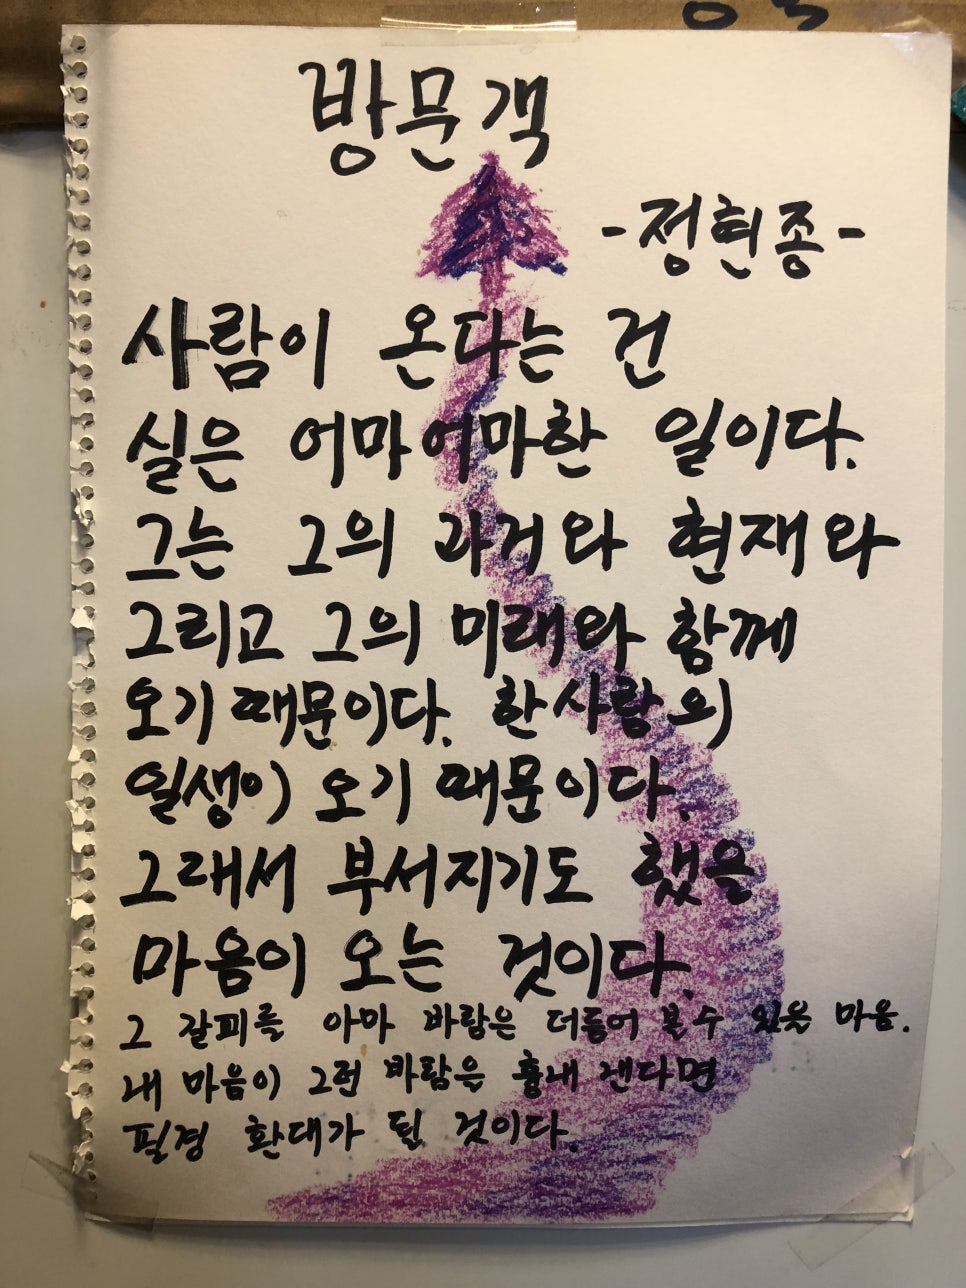 방문객
-정현종-
사람이 온다는 건
실은 어마어마한 일이다.
그는 그의 과거와 현재와
그리고 그의 미래와 함께
오기 때문이다. 한사람의
일생이 오기 때문이다.
그래서 부서지기도 했을
마음이 오는 것이다.
그 갈피를 아마 바람은 더듬어 볼수 있을 마음.
내 마음이 그런 바람은 흉내 낸다면
필경 환대가 될 것이다.